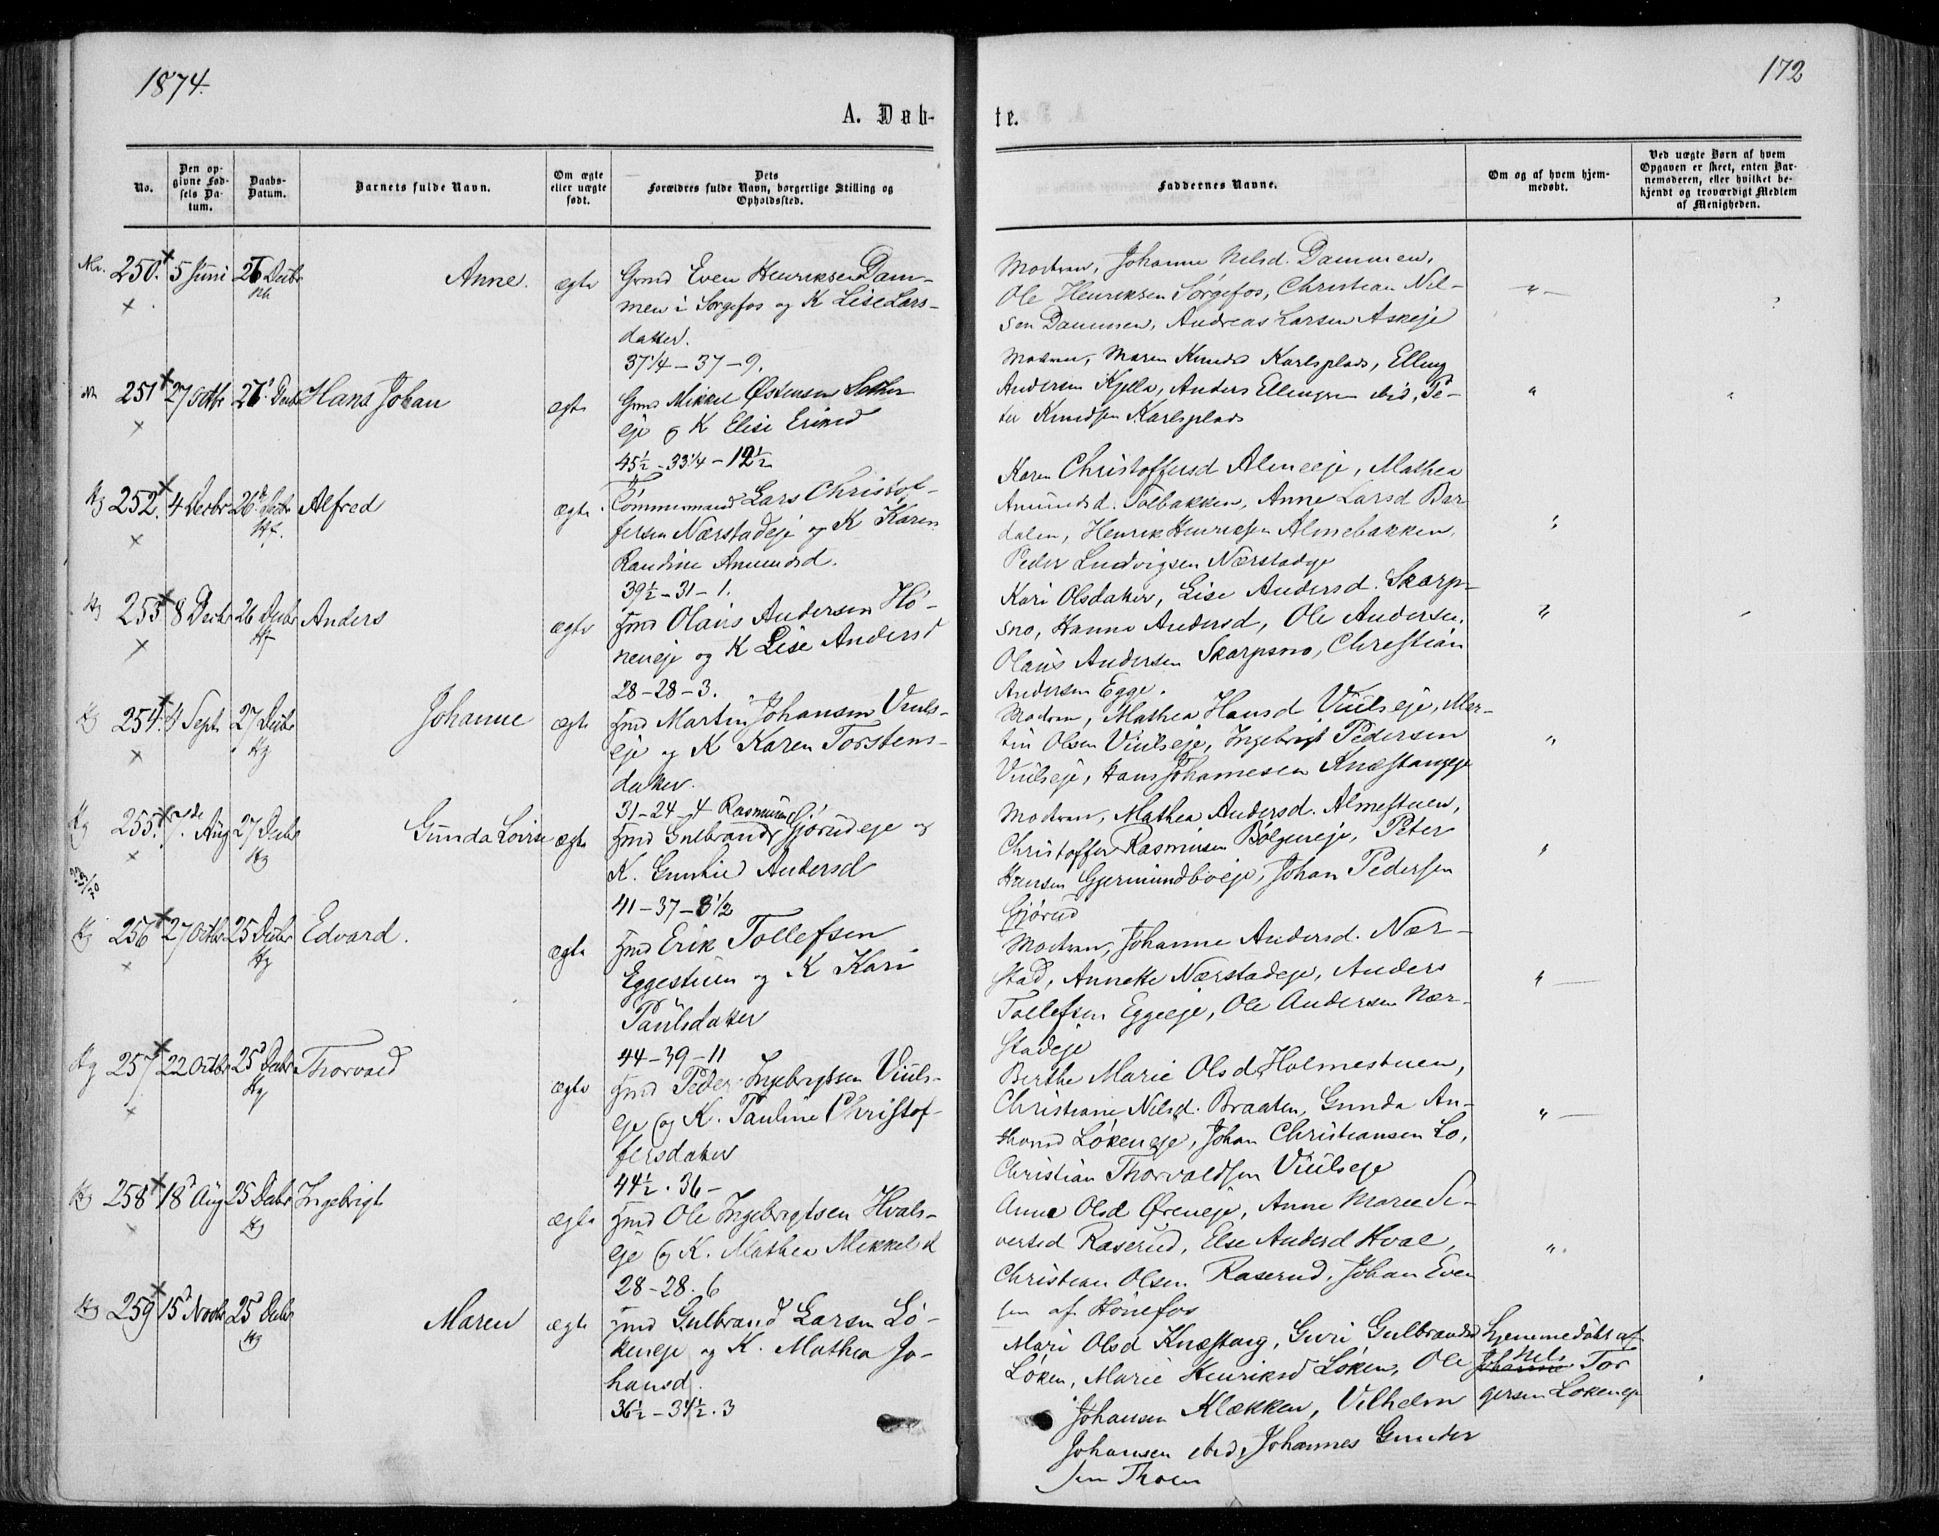 1874.
172
A. Døb-
te.
No.
Den op-
givne Fød-
sels Da-
tum.
Daabs-
Datum.
Barnets fulde Navn.
Om ægte
eller uægte
født.
Dets
Forældres fulde Navn, borgerlige Stilling og
Opholdssted.
Faddernes Navne.
Om og af hvem hjem-
medøbt.
Ved uægte Børn af hvem
Opgaven er skeet, enten Bar-
nemoderen, eller hvilket be-
kjendt og troværdigt Medlem
af Menigheden.
250. 5 Juni 26 Decbr Anne. ægte
Even Henriksen Dam-
men i Sørgefos og K Lise Lars-
datter.
37 1/4 - 37 - 9.
Modren, Johanne Nilsd. Dammen,
Ole Henriksen Sørgefos, Christian Nil-
sen Dammen, Andreas Larsen Askeje
251 27 Octbr 26 Decbr Hans Johan ægte
Mikkel Østensen Sæther
eje og K Elise Eriksd
45 1/2 - 33 1/4 - 12 1/2
Modren, Maren Knudsd Karlsplads, Elling
Andersen Kjølla, Anders Ellingsen ibid, Pe-
ter Knudsen Karlsplads
252. 4 Decbr 26 Decbr Alfred ægte
Tømmermand Lars Christof-
fersen Nærstadeje og K Karen
Randine Amundsd.
39 1/2 - 31 - 1.
Karen Christoffersd Almeeje, Mathea
Amundsd. Solbakken, Anne Larsd Bar-
dalen, Henrik Henriksen Almebakken,
Peder Ludvigsen Nærstadeje
253 8 Decbr 26 Decbr Anders ægte
Olaus Andersen Hø-
neneje og K Lise Andersd
28 - 28 - 3.
Kari Olsdatter, Lise Andersd. Skarp-
sno, Hanne Andersd, Ole Andersen,
Olaus Andersen Skarpsno, Christian
Andersen Egge.
254. 4 Sept 27 Decbr Johanne ægte
Martin Johansen Viuls-
eje og K Karen Torstens-
datter.
31 - 24 - 4
Modren, Mathea Hansd Viulseje, Mar-
tin Olsen Viulseje, Ingebrigt Pedersen
Viulseje, Hans Johannesen Knæstangeje
255. Aug 27 Decbr Gunda Lovise ægte
Rasmussen
Gulbrand Gjørudeje og
K. Gunhild Andersd
41 - 37 - 8 1/2
Modren, Mathea Andersd. Almestuen,
Christoffer Rasmusen Bølgeneje, Peter
Hansen Gjermundboeje, Johan Pedersen
Gjørud
256 27 Octbr 25 Decbr Edvard. ægte
Erik Tollefsen
Eggestuen og K Kari
Paulsdatter
44 - 39 - 11
Modren, Johanne Andersd. Nær-
stad, Annette Nærstadeje, Anders
Tollefsen Eggeeje, Ole Andersen Nær-
stadeje
257 22 Octbr 25 Decbr Thorvald ægte
Peder Ingebrigtsen Viuls-
eje og K. Pauline Christof-
fersdatter
44 1/2 . 36 -
Berthe Marie Olsd Holmestuen,
Christiane Nilsd. Braaten, Gunda An-
thonsd Løkeneje, Johan Christiansen Lo,
Christian Thorvaldsen Viulseje
258 18 Aug 25 Decbr Ingebrigt ægte
Ole Ingebrigtsen Hvals-
eje og K. Mathea Mikkelsd
28 - 28 . 6
Anne Olsd Øreneje, Anne Marie Si-
versd Raserud, Else Andersd Hval,
Christian Olsen Raserud, Johan Even
sen af Hønefos
259 15 Novbr 25 Decbr Maren ægte
Gulbrand Larsen Lø-
keneje og K. Mathea Jo-
hansd.
36 1/2 - 34 1/2 . 3
Mari Olsd Knæstang, Guri Gulbrandsd
Løken, Marie Henriksd Løken, Ole
Johansen Klækken, Vilhelm
Johansen ibid, Johannes Gunder
sen Thoen
hjemmedøbt af
Nels Tor
gersen Løkeneje